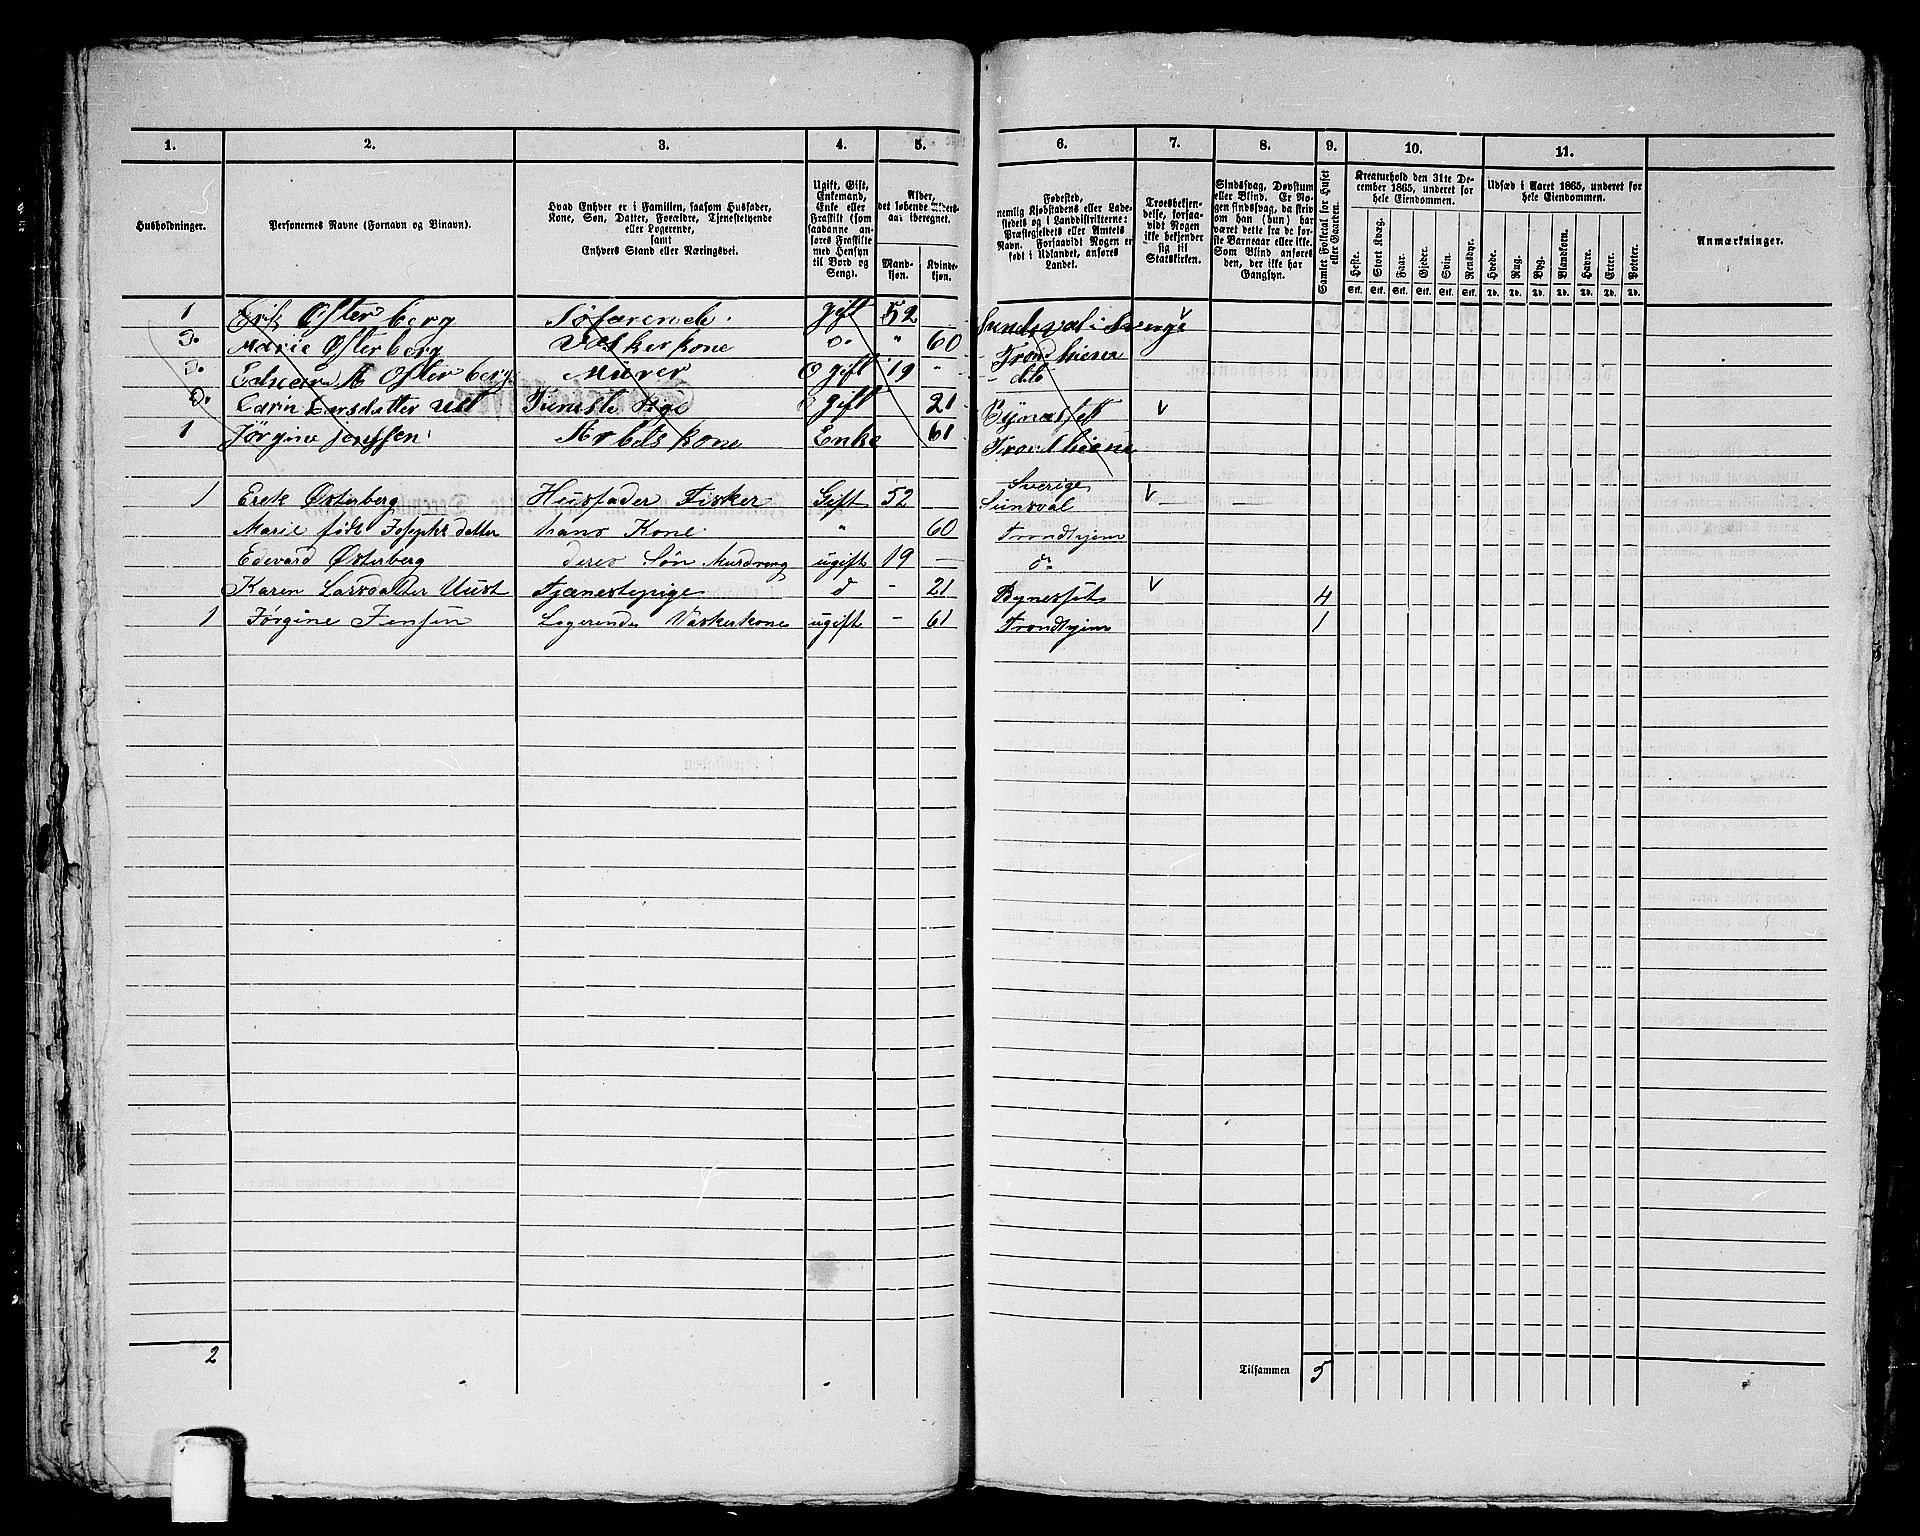 1. 2. 3. 4. 5. 6. 7. 8. 9. 10. 11.
Husholdninger.
Personernes Navne (Fornavn og Binavn).
Hvad Enhver er i Familien, saasom Husfader,
Kone, Søn, Datter, Forældre, Tjenestetyende
eller Logerende,
samt
Enhvers Stand eller Næringsvei.
Ugift, Gift,
Enkemand,
Enke eller
Fraskilt (som
saadanne an-
føres Fraskilte
med Hensyn
til Bord og
Seng).
Alder,
det løbende Alders-
aar iberegnet.
Mand-
kjøn.
Kvinde-
kjøn.
Fødested,
nemlig Kjøbstadens eller Lade-
stedets og i Landdistrikterne:
Præstegjeldets eller Amtets
Navn. Forsaavidt Nogen er
født i Udlandet, anføres
Landet.
Troesbekjen-
delse, forsaa-
vidt Nogen
ikke bekjender
sig til
Statskirken.
Sindssvag, Døvstum
eller Blind. Er No-
gen sindssvag, da skriv
om han (hun) har
været dette fra de før-
ste Barneaar eller ikke.
Som Blind anføres
den, der ikke har
Gangsyn.
Samlet Folketal for Huset
eller Gaarden.
Kreaturhold den 31te De-
cember 1865, underet for
hele Eiendommen.
Heste. Stort Kvæg. Faar. Gjeder. Svin. Rensdyr.
Stk. Stk. Stk. Stk. Stk. Stk.
Udsæd i Aaret 1865, underet for
hele Eiendommen.
Hvede. Rug. Byg. Blandkorn. Havre. Erter. Poteter.
Td. Td. Td. Td. Td. Td. Td.
Anmærkninger.
1 Erik Østerberg Søfarende gift 52 Sundsval i Sverge
Do Marie Østerberg Vaskerkone Do " 60 Trondhiem
Østerberg Mürer Ogift 19 " dito
Do Larsdatter Ust Tieneste Ogift 21 Bynesset v
1 Jørgine Jenssen Arbeidskone Enke 61 Trondhiem
1 Erek Østerberg Husfader Fisker Gift 52 Sverige Sunsval v
Marie født Josephsdatter hans Kone " 60 Trondhjem
Edevard Østerberg deres Søn Murdreng ugift 19 — do
Karen Larsdatter Uust Tjenestepige d - 21 Bynesset v 4
1 Jørgine Jensen Logerende Vaskerkone ugift - 61 Trondhjem 1
2 Tilsammen 5